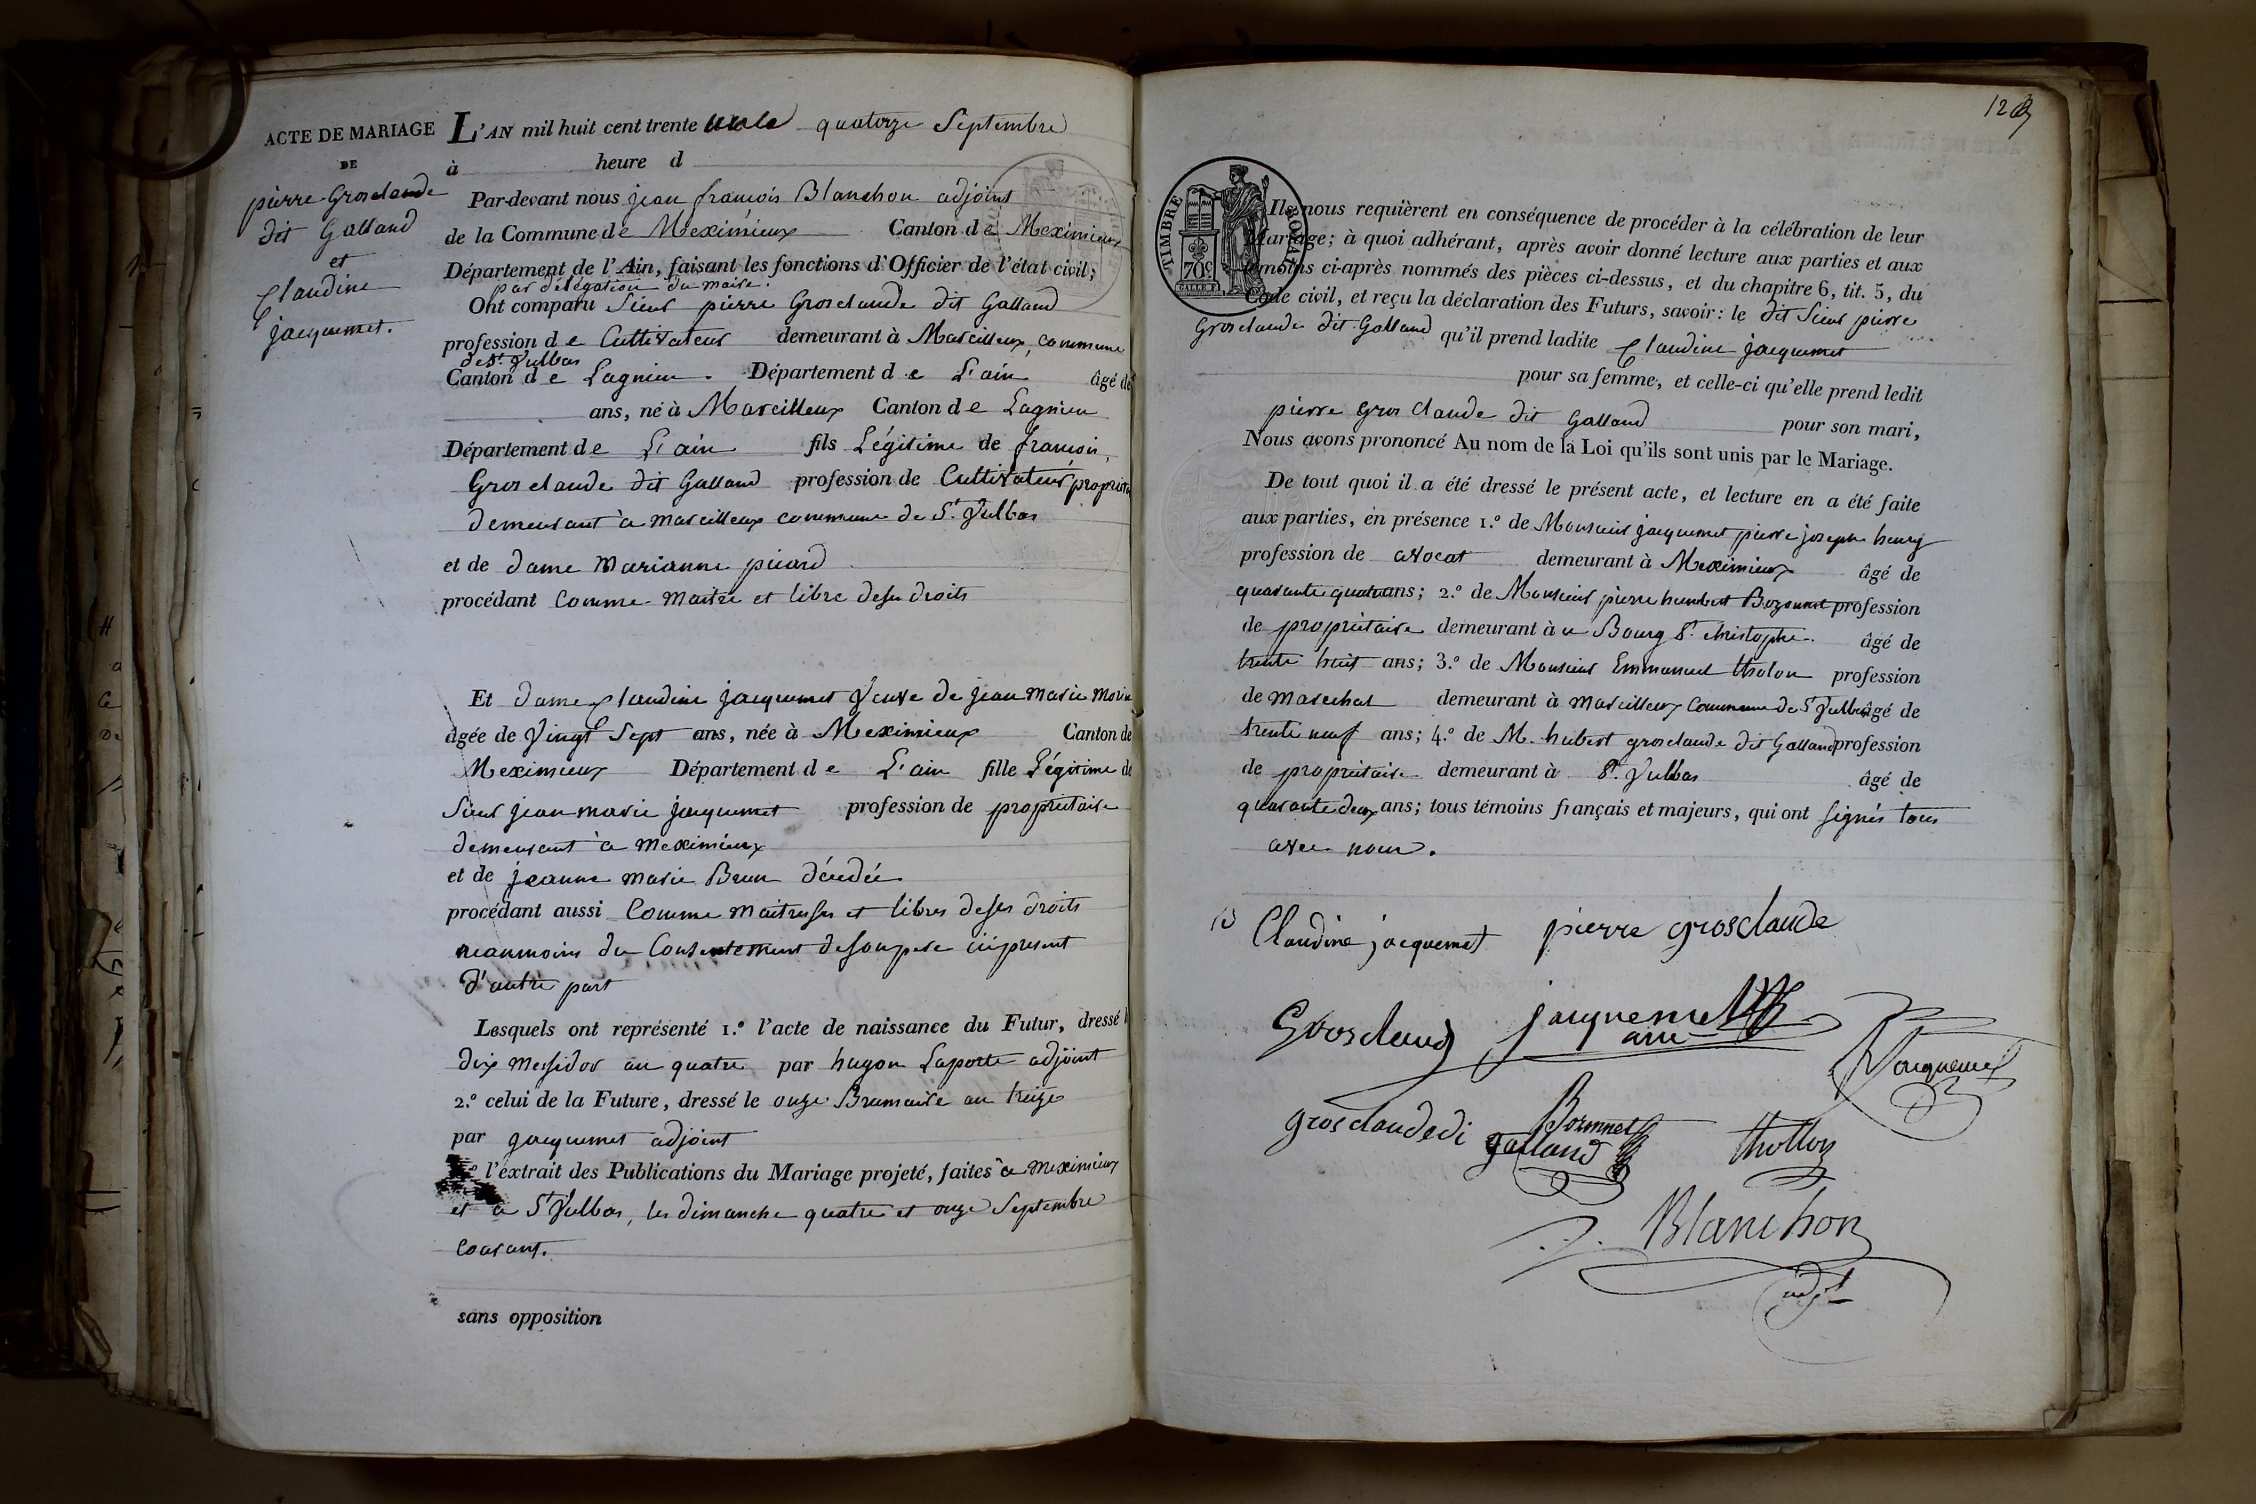 ACTE DE MARIAGE
DE
pierre Grosclaude
dit Galland
et
Claudine
jacquemet.
L'AN mil huit cent trente quatorze Septembre
à heure d
Par-devant nous jean françois Blanchon adjoint
de la Commune de Meximieux Canton de Meximieux
Département de l'Ain, faisant les fonctions d'Officier de l'état civil;
par délégation du maire.
Ont comparu Sieur pierre Grosclaude dit Galland
profession de Cultivateur demeurant à Marcilleux, commune
de St. Vulbas
Canton de Lagnieu. Département de L'ain âgé de
ans, né à Marcilleux Canton de Lagnieu
Département de L'ain fils Légitime de françois,
Grosclaude dit Galland profession de Cultivateur,
demeurant à marcilleux commune de St. Vulbas
et de dame Marianne picard
procédant Comme Maitre et libre deses droits
Et dame Claudine jacquemet Veuve de jean Marie
âgée de Vingt Sept ans, née à Meximieux Canton de
Meximieux Département de L'ain fille Légitime de
Sieur jean marie jacquemet profession de propriétaire
demeurant à meximieux
et de jeanne marie Brun décédée
procédant aussi Comme maitresses et libres deses droits
neanmoins du Consentement desonpere cipresent
d'autre part
Lesquels ont représenté 1.º l'acte de naissance du Futur, dressé
dix Messidor an quatre par hugon Laporte adjoint
2.º celui de la Future, dressé le onze Brumaire an treize
par jacquemet adjoint
l'extrait des Publications du Mariage projeté, faites à meximieux
et à St Vulbas, les dimanche quatre et onze Septembre
Courant.
sans opposition
TIMBRE ROYAL
70 c
Ils nous requièrent en conséquence de procéder à la célébration de leur
Mariage; à quoi adhérant, après avoir donné lecture aux parties et aux
témoins ci-après nommés des pièces ci-dessus, et du chapitre 6, tit. 5, du
Code civil, et reçu la déclaration des Futurs, savoir: le dit Sieur pierre
Grosclaude dit Galland qu'il prend ladite Claudine jacquemet
pour sa femme, et celle-ci qu'elle prend ledit
pierre Gros claude dit Galland pour son mari,
Nous avons prononcé Au nom de la Loi qu'ils sont unis par le Mariage.
De tout quoi il a été dressé le présent acte, et lecture en a été faite
aux parties, en présence 1.º de Monsieur jacquemet pierre joseph henry
profession de avocat demeurant à Meximieux âgé de
quarante quatre ans; 2.º de Monsieur pierre humbert Bozonnet profession
de propriétaire demeurant à Bourg St. christophe. âgé de
trente huit ans; 3.º de Monsieur Emmanuel tholon profession
de marechal demeurant à marcilleux Commune de St Vulbas âgé de
trente neuf ans; 4.º de M. hubert grosclaude dit Galland profession
de propriétaire demeurant à St. Vulbas âgé de
quarante deux ans; tous témoins français et majeurs, qui ont Signés tous
avec nous.
Claudine jacquemet pierre grosclaude
Grosclaud jacquemet
ainé
Jacquemet
grosclaudedi galland Bozonnet thollon
Blanchon
adjt